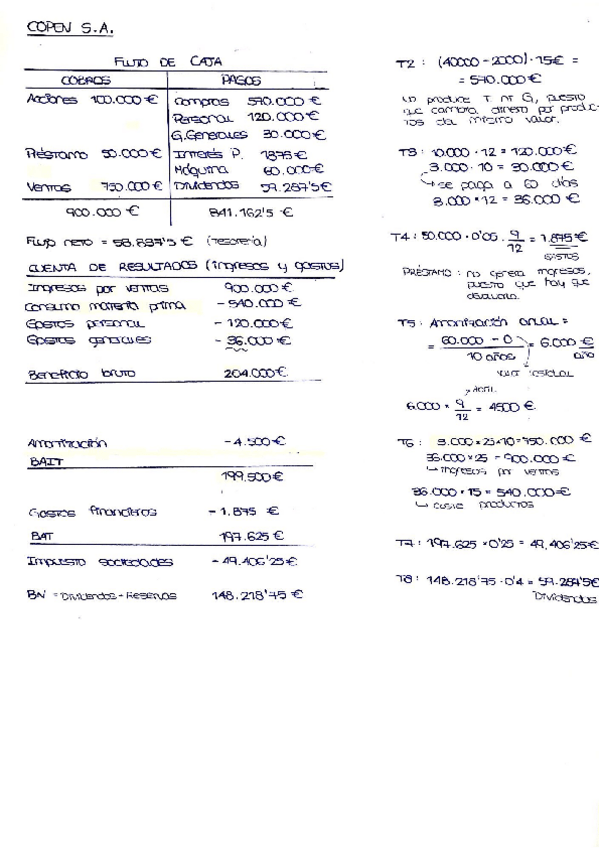 COPEN S.A.
FLUJO DE CAJA
COBROS PAGOS
Acciones 100.000 € Compras 570.000 €
Personal 120.000 €
G.Generales 30.000 €
Préstamo 50.000 € Interés P. 1875 €
Máquina 60.000 €
Ventas 750.000 € Dividendos 59.287'5 €
900.000 € 841.162'5 €
Flujo neto = 58.837'5 € (tesorería)
CUENTA DE RESULTADOS (ingresos y gastos)
Ingresos por ventas 900.000 €
Consumo materia prima - 540.000 €
Gastos personal - 120.000 €
Gastos generales - 36.000 €
Beneficio bruto 204.000 €
Amortización -4.500 €
BAIT
199.500 €
Gastos financieros -1.875 €
BAT 197.625 €
Impuesto sociedades -49.406'25 €
BN = Dividendos - Reservas 148.218'75 €
T2: (40000 - 2000) · 15 € =
= 570.000 €
produce T ni G, puesto
que cambia dinero por produc-
tos del mismo valor.
T3: 10.000 · 12 = 120.000 €
3.000 · 10 = 30.000 €
se paga a 60 días
3.000 * 12 = 36.000 €
T4: 50.000 · 0'05 · 9/12 = 1.875 €
GASTOS
PRÉSTAMO: no genera ingresos,
puesto que hay que
devolverlo.
T5: Amortización anual =
= 60.000 - 0 / 10 años = 6.000 €/año
valor residual
abril
6.000 * 9/12 = 4500 €
T6: 3.000 × 25 × 10 = 750.000 €
36.000 × 25 = 900.000 €
ingresos por ventas
36.000 · 15 = 540.000 €
coste productos
T7: 197.625 × 0'25 = 49.406'25 €
T8: 148.218'75 · 0'4 = 59.287'5 €
Dividendos